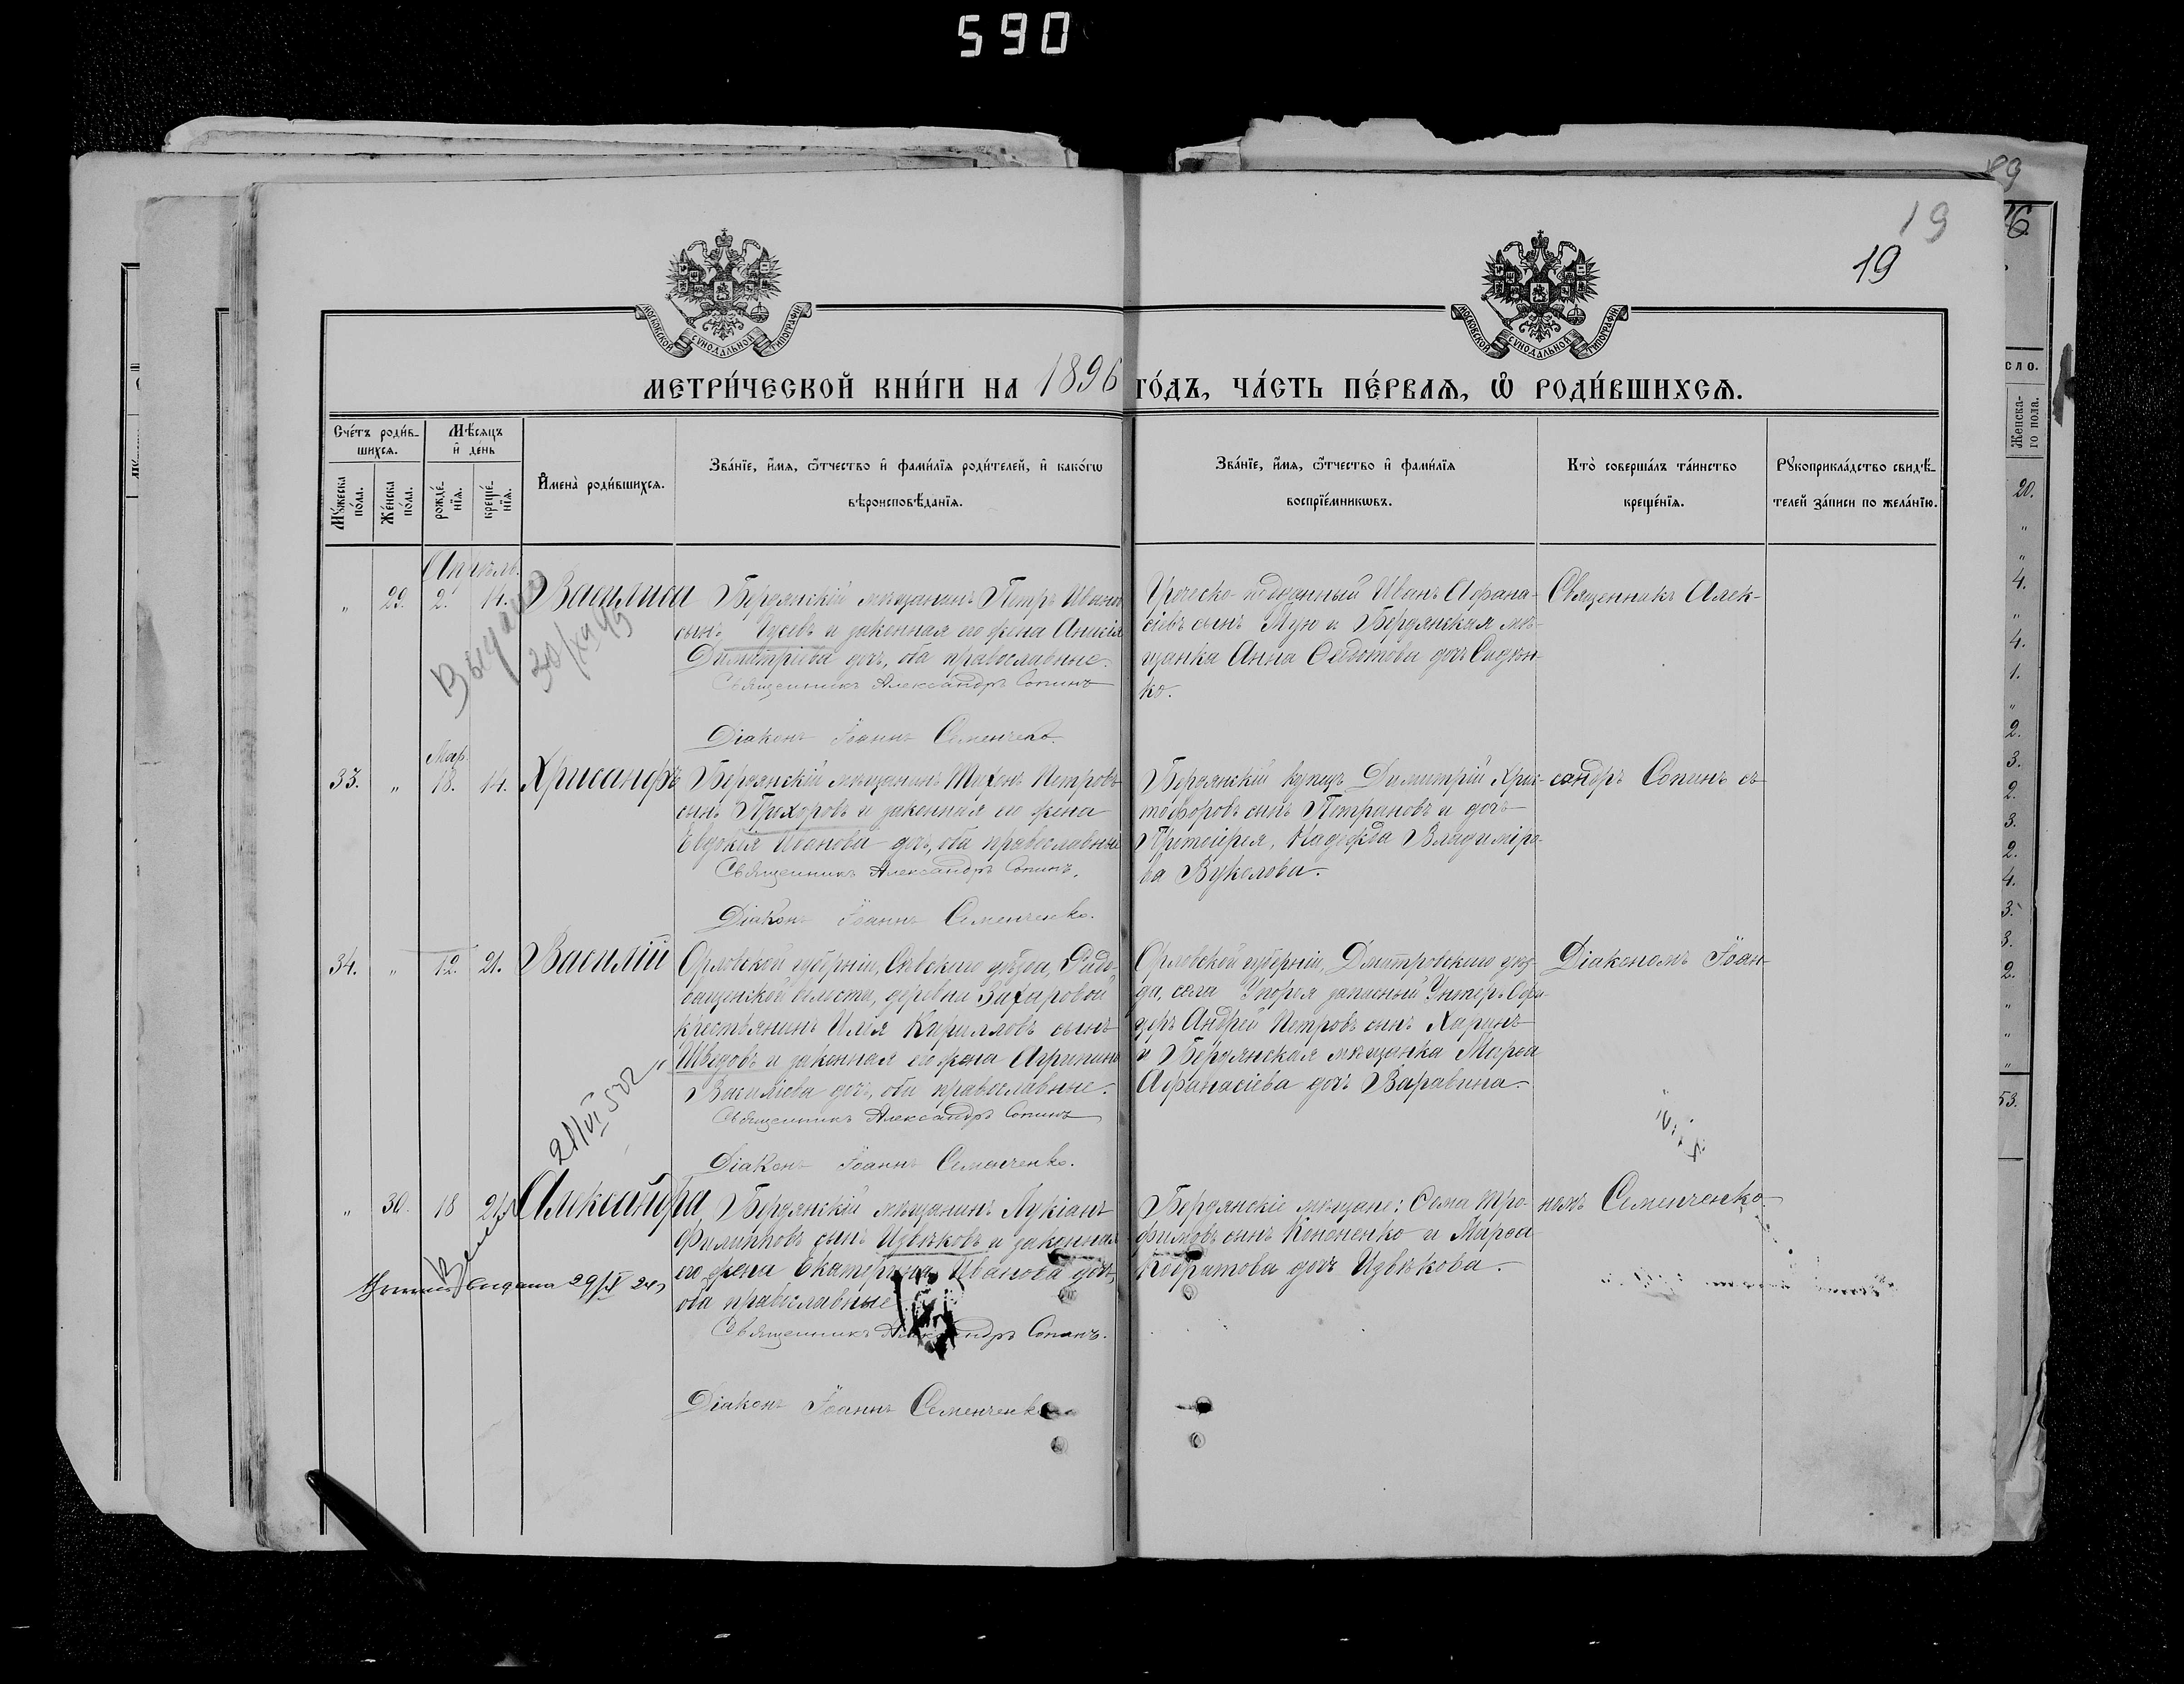 590
89
19
19
МОСКОВСКОЙ СѴНОДАЛЬНОЙ ТИПОГРАФІИ
МОСКОВСКОЙ СѴНОДАЛЬНОЙ ТИПОГРАФІИ
МЕТРИ́ЧЕСКОЙ КНИ́ГИ НА 1896 ГО́ДЪ, ЧА́СТЬ ПЕ́РВАѦ, Ѽ РОДИ́ВШИХСѦ.
Сче́тъ роди́в-
шихсѧ.
Мѣ́сѧцъ
и҆ де́нь
Мꙋ́жеска по́ла.
Же́нска по́ла.
рожде́-нїѧ.
креще́-нїѧ.
И҆мена̀ роди́вшихсѧ.
Зва́нїе, и҆́мѧ, ѻ҆́тчество и҆ фами́лїѧ роди́телей, и҆ како́гѡ
вѣроисповѣ́данїѧ.
Зва́нїе, и҆́мѧ, ѻ҆́тчество и҆ фами́лїѧ
воспрїе́мникѡвъ.
Кто̀ соверша́лъ та́инство
креще́нїѧ.
Рꙋкоприкла́дство свидѣ́-
телей за́писи по жела́нїю.
Апрѣль.
" 29. 2. 14. Василиса
Бердянскій мѣщанинъ Петръ Ивановъ
сынъ Гусевъ и законная его жена Анисія
Димитріева дочь, оба православные.
Священникъ Александръ Сопинъ
Діаконъ Іоаннъ Семенченко.
Греческо-подданный Иванъ Афана-
сіевъ сынъ Мую и Бердянская мѣ-
щанка Анна дочь
ко.
Священникъ Алек-
Мар.
33. " 18. 14. Хрисанфъ
Бердянскій мѣщанинъ Тихонъ Петровъ
сынъ Прохоровъ и законная его жена
Евдокія Иванова дочь, оба православные
Священникъ Александръ Сопинъ.
Діаконъ Іоаннъ Семенченко.
Бердянскій купецъ Димитрій Хрис-
тофоровъ сынъ Петрановъ и дочь
Протоіерея, Надежда Владиміро-
ва Вукелова.
сандръ Сопинъ съ
34. " 12. 21. Василій
Орловской губерніи, Сѣвскаго уѣзда,
волости, деревни Захаровой
крестьянинъ Илія Кирилловъ сынъ
Шведовъ и законная его жена Агрипина
Василіева дочь, оба православные.
Священникъ Александръ Сопинъ
Діаконъ Іоаннъ Семенченко.
Орловской губерніи, Дмитровскаго уѣз-
да, села Упороя запасный Унтеръ-Офи-
церъ Андрей Петровъ сынъ Харинъ
и Бердянская мѣщанка Марѳа
Афанасіева дочь Варавина.
Діакономъ Іоан-
" 30. 18 21. Александра
Бердянскій мѣщанинъ Лукіанъ
Филипповъ сынъ Извѣковъ и законная
его жена Екатерина Иванова дочь,
оба православные
Священникъ Александръ Сопинъ.
Діаконъ Іоаннъ Семенченко
Бердянскіе мѣщане: Ѳома Тро-
фимовъ сынъ Кононенко и Марѳа
Кодратова дочь Извѣкова.
номъ Семенченко
выдана 29/IV 24